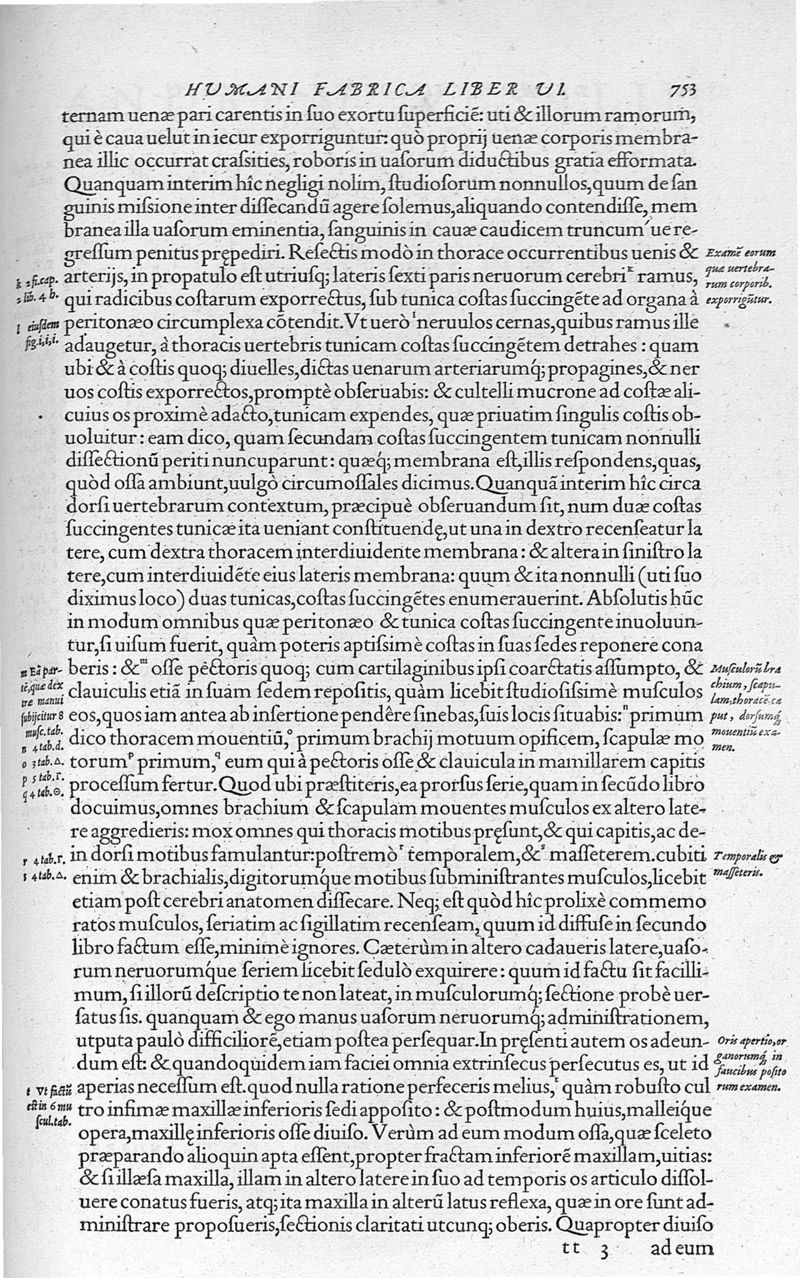 HUMANI FABRICA LIBER VI. 753
ternam uenæ pari carentis in ſuo exortu ſuperficiē: uti & illorum ramorum,
qui è caua uelut in iecur exporriguntur: quò proprij uenæ corporis membra-
nea illic occurrat craſsities, roboris in uaſorum diductibus gratia efformata.
Quanquam interim hîc negligi nolim, ſtudioſorum nonnullos, quum de ſan
guinis miſsione inter diſſecandū agere ſolemus, aliquando contendiſſe, mem
branea illa uaſorum eminentia, ſanguinis in cauæ caudicem truncum'ue re-
greſſum penitus prępediri. Reſectis modò in thorace occurrentibus uenis &
Examē eorum
quæ uertebra-
rum corporib.
exporrigūtur.
k 2 fi. cap.
2 lib. 4 h.
arterijs, in propatulo eſt utriuſq; lateris ſexti paris neruorum cerebri k ramus,
qui radicibus coſtarum exporrectus, ſub tunica coſtas ſuccingēte ad organa à
l eiuſdem
fig. i, i, i.
peritonæo circumplexa cōtendit. Vt uerò l neruulos cernas, quibus ramus ille
adaugetur, à thoracis uertebris tunicam coſtas ſuccingētem detrahes: quam
ubi & à coſtis quoq; diuelles, dictas uenarum arteriarumq́; propagines, & ner
uos coſtis exporrectos, promptè obſeruabis: & cultelli mucrone ad coſtæ ali-
cuius os proximè adacto, tunicam expendes, quæ priuatim ſingulis coſtis ob-
uoluitur: eam dico, quam ſecundam coſtas ſuccingentem tunicam nonnulli
diſſectionū periti nuncuparunt: quæq́; membrana eſt, illis reſpondens, quas,
quòd oſſa ambiunt, uulgò circumoſſales dicimus. Quanquā interim hîc circa
dorſi uertebrarum contextum, præcipuè obſeruandum ſit, num duæ coſtas
ſuccingentes tunicæ ita ueniant conſtituendę, ut una in dextro recenſeatur la
tere, cum dextra thoracem interdiuidente membrana: & altera in ſiniſtro la
tere, cum interdiuidēte eius lateris membrana: quum & ita nonnulli (uti ſuo
diximus loco) duas tunicas, coſtas ſuccingētes enumerauerint. Abſolutis hūc
in modum omnibus quæ peritonæo & tunica coſtas ſuccingente inuoluun-
tur, ſi uiſum fuerit, quàm poteris aptiſsimè coſtas in ſuas ſedes reponere cona
m Eā par-
tē, quæ dex
træ manui
ſubijcitur 8
muſc. tab.
n 4 tab. d.
o 3 tab. Δ.
p 5 tab. Γ.
q 4 tab. Θ.
beris: & m oſſe pectoris quoq; cum cartilaginibus ipſi coarctatis aſſumpto, &
Muſculorū bra
chium, ſcapu-
lam, thoracē, ca
put, dorſumq́;
mouentiū exa-
men.
clauiculis etiā in ſuam ſedem repoſitis, quàm licebit ſtudioſiſsimè muſculos
eos, quos iam antea ab inſertione pendêre ſinebas, ſuis locis ſituabis: n primum
dico thoracem mouentiū, o primum brachij motuum opificem, ſcapulæ mo
torum p primum, q eum qui à pectoris oſſe & clauicula in mamillarem capitis
proceſſum fertur. Quod ubi præſtiteris, ea prorſus ſerie, quam in ſecūdo libro
docuimus, omnes brachium & ſcapulam mouentes muſculos ex altero late-
re aggredieris: mox omnes qui thoracis motibus pręſunt, & qui capitis, ac de-
r 4 tab. Γ.
s 4 tab. Δ.
in dorſi motibus famulantur: poſtremò r temporalem, & s maſſeterem. cubiti
Temporalis &
maſſeteris.
enim & brachialis, digitorumq́ue motibus ſubminiſtrantes muſculos, licebit
etiam poſt cerebri anatomen diſſecare. Neq; eſt quòd hîc prolixè commemo
ratos muſculos, ſeriatim ac ſigillatim recenſeam, quum id diffuſe in ſecundo
libro factum eſſe, minimè ignores. Cæterùm in altero cadaueris latere, uaſo-
rum neruorumq́ue ſeriem licebit ſedulò exquirere: quum id factu ſit facilli-
mum, ſi illorū deſcriptio te non lateat, in muſculorumq́; ſectione probè uer-
ſatus ſis. quanquam & ego manus uaſorum neruorumq́; adminiſtrationem,
utputa paulò difficiliorē, etiam poſtea perſequar. In pręſenti autem os adeun-
Oris apertio, or
ganorumq́; in
faucibus poſito
rum examen.
dum eſt: & quandoquidem iam faciei omnia extrinſecus perſecutus es, ut id
t Vt fictū
eſt in 6 mu
ſcul. tab.
aperias neceſſum eſt. quod nulla ratione perfeceris melius, t quàm robuſto cul
tro infimæ maxillæ inferioris ſedi appoſito: & poſtmodum huius, malleiq́ue
opera, maxillę inferioris oſſe diuiſo. Verùm ad eum modum oſſa, quæ ſceleto
præparando alioquin apta eſſent, propter fractam inferiorē maxillam, uitias:
& ſi illæſa maxilla, illam in altero latere in ſuo ad temporis os articulo diſſol-
uere conatus fueris, atq; ita maxilla in alterū latus reflexa, quæ in ore ſunt ad-
miniſtrare propoſueris, ſectionis claritati utcunq; oberis. Quapropter diuiſo
tt 3 ad eum